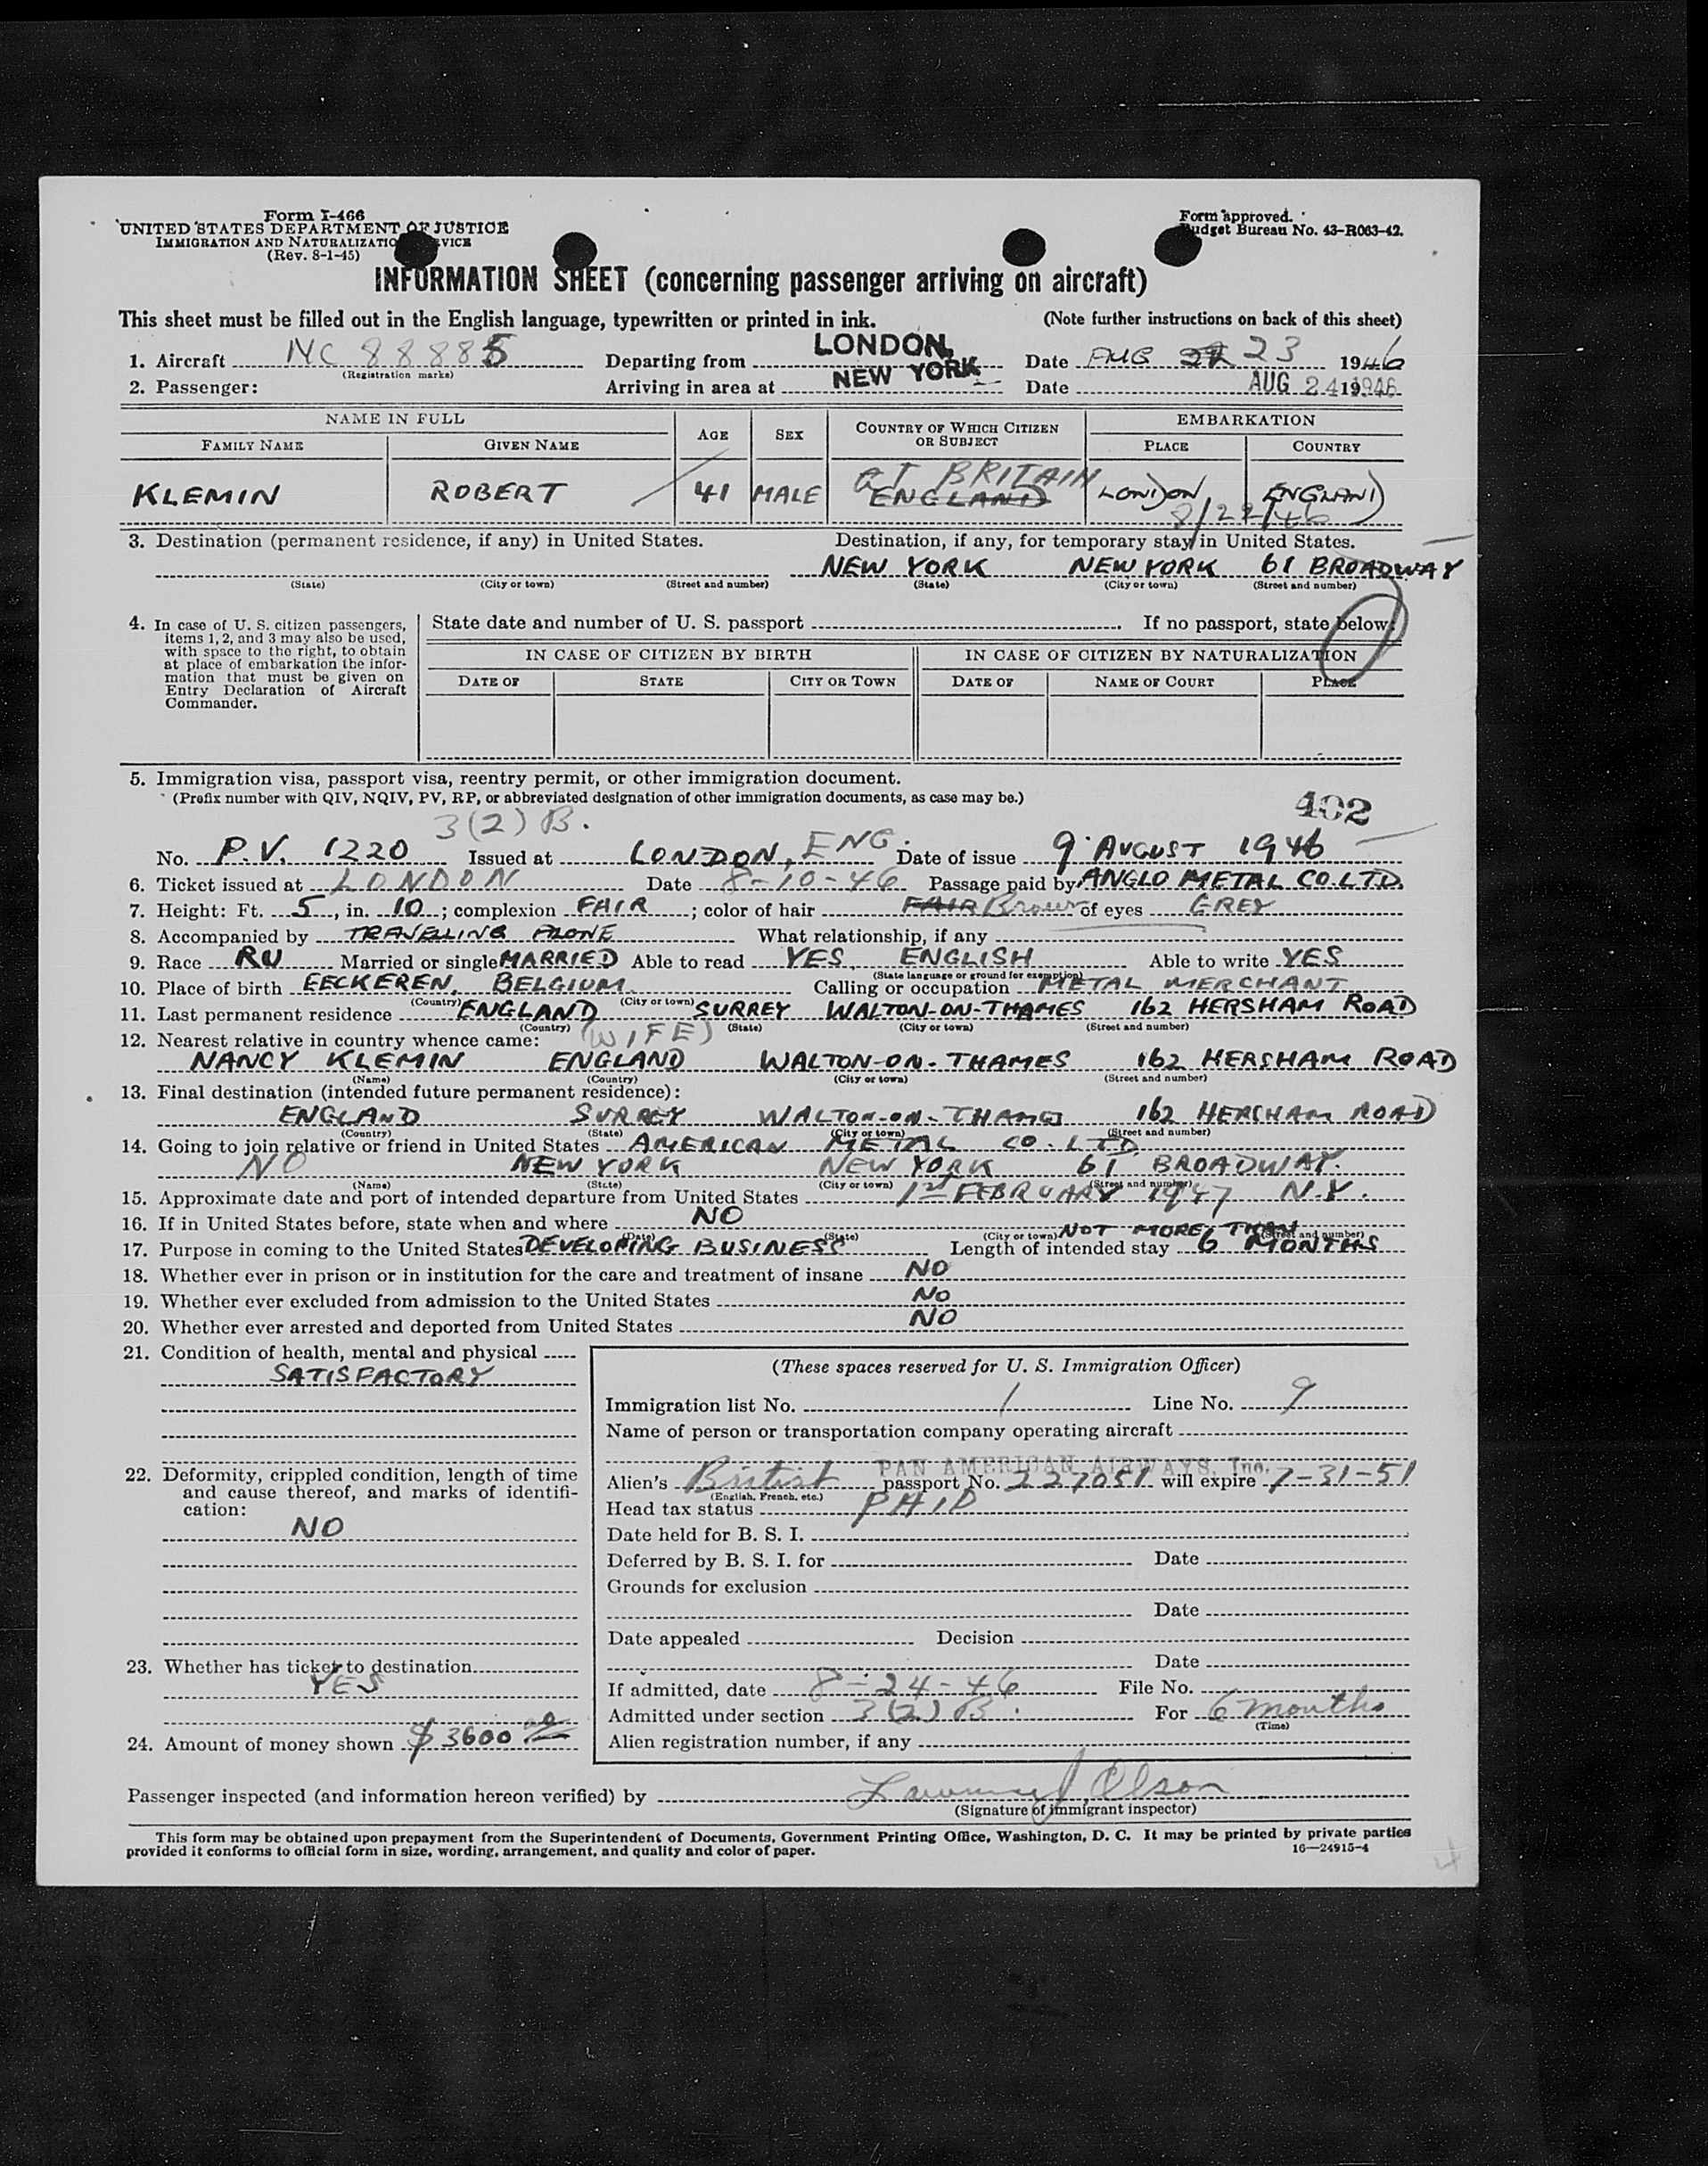 Form I-466
UNITED STATES DEPARTMENT OF JUSTICE
IMMIGRATION AND NATURALIZATION SERVICE
(Rev. 8-1-45)
Form approved.
Budget Bureau No. 43-R063-42.
INFORMATION SHEET (concerning passenger arriving on aircraft)
This sheet must be filled out in the English language, typewritten or printed in ink. (Note further instructions on back of this sheet)
1. Aircraft NC 88885 Departing from LONDON, Date AUG 23 1946
(Registration marks)
2. Passenger: Arriving in area at NEW YORK Date AUG 24 1946
NAME IN FULL AGE SEX COUNTRY OF WHICH CITIZEN OR SUBJECT EMBARKATION
FAMILY NAME GIVEN NAME PLACE COUNTRY
GT BRITAIN
KLEMIN ROBERT 41 MALE ENGLAND LONDON ENGLAND
8/22/46
3. Destination (permanent residence, if any) in United States. Destination, if any, for temporary stay in United States.
NEW YORK NEW YORK 61 BROADWAY
(State) (City or town) (Street and number) (State) (City or town) (Street and number)
4. In case of U. S. citizen passengers, items 1, 2, and 3 may also be used, with space to the right, to obtain at place of embarkation the information that must be given on Entry Declaration of Aircraft Commander.
State date and number of U. S. passport If no passport, state below:
IN CASE OF CITIZEN BY BIRTH IN CASE OF CITIZEN BY NATURALIZATION
DATE OF STATE CITY OR TOWN DATE OF NAME OF COURT PLACE
5. Immigration visa, passport visa, reentry permit, or other immigration document.
(Prefix number with QIV, NQIV, PV, RP, or abbreviated designation of other immigration documents, as case may be.)
402
3(2) B.
No. P.V. 1220 Issued at LONDON, ENG. Date of issue 9 AUGUST 1946
6. Ticket issued at LONDON Date 8-10-46 Passage paid by ANGLO METAL CO. LTD.
7. Height: Ft. 5, in. 10; complexion FAIR; color of hair FAIR Brown of eyes GREY
8. Accompanied by TRAVELLING ALONE What relationship, if any
9. Race RU Married or single MARRIED Able to read YES, ENGLISH Able to write YES
(State language or ground for exemption)
10. Place of birth EECKEREN, BELGIUM Calling or occupation METAL MERCHANT
(Country) (City or town)
11. Last permanent residence ENGLAND SURREY WALTON-ON-THAMES 162 HERSHAM ROAD
(Country) (State) (City or town) (Street and number)
12. Nearest relative in country whence came: (WIFE)
NANCY KLEMIN ENGLAND WALTON-ON-THAMES 162 HERSHAM ROAD
(Name) (Country) (City or town) (Street and number)
13. Final destination (intended future permanent residence):
ENGLAND SURREY WALTON-ON-THAMES 162 HERSHAM ROAD
(Country) (State) (City or town) (Street and number)
14. Going to join relative or friend in United States AMERICAN METAL CO. LTD
NO NEW YORK NEW YORK 61 BROADWAY.
(Name) (State) (City or town) (Street and number)
15. Approximate date and port of intended departure from United States 1st FEBRUARY 1947 N.Y.
16. If in United States before, state when and where NO
(Date) (State) (City or town) (Street and number)
NOT MORE THAN
17. Purpose in coming to the United States DEVELOPING BUSINESS Length of intended stay 6 MONTHS
18. Whether ever in prison or in institution for the care and treatment of insane NO
19. Whether ever excluded from admission to the United States NO
20. Whether ever arrested and deported from United States NO
21. Condition of health, mental and physical
SATISFACTORY
22. Deformity, crippled condition, length of time and cause thereof, and marks of identification:
NO
23. Whether has ticket to destination
YES
24. Amount of money shown $3600 00
(These spaces reserved for U. S. Immigration Officer)
Immigration list No. 1 Line No. 9
Name of person or transportation company operating aircraft
PAN AMERICAN AIRWAYS, Inc.
Alien's British passport No. 227051 will expire 7-31-51
(English, French, etc.)
Head tax status PAID
Date held for B. S. I.
Deferred by B. S. I. for Date
Grounds for exclusion
Date
Date appealed Decision
Date
If admitted, date 8-24-46 File No.
Admitted under section 3(2) B. For 6 months
(Time)
Alien registration number, if any
Passenger inspected (and information hereon verified) by Olson
(Signature of immigrant inspector)
This form may be obtained upon prepayment from the Superintendent of Documents, Government Printing Office, Washington, D. C. It may be printed by private parties
provided it conforms to official form in size, wording, arrangement, and quality and color of paper. 16—24915-4